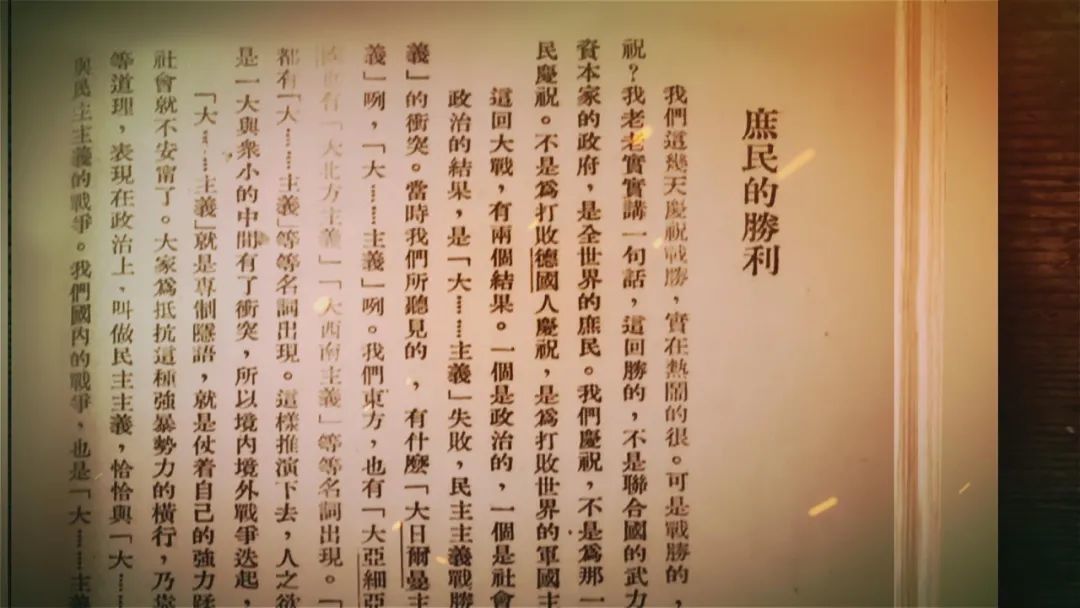 庶民的勝利
我們這幾天慶祝戰勝，實在熱鬧的很。可是戰勝的，
祝？我老老實實講一句話，這回勝的，不是聯合國的武力
資本家的政府，是全世界的庶民。我們慶祝，不是爲那一
民慶祝。不是爲打敗德國人慶祝，是爲打敗世界的軍國主
這回大戰，有兩個結果。一個是政治的，一個是社會
政治的結果，是「大……主義」失敗，民主主義戰勝
義」的衝突。當時我們所聽見的，有什麼「大日爾曼主
義」咧，「大……主義」咧。我們東方，也有「大亞細亞
有「大北方主義」「大西南主義」等等名詞出現。「
都有「大……主義」等等名詞出現。這樣推演下去，人之欲
是一大與衆小的中間有了衝突，所以境內境外戰爭迭起，
「大……主義」就是專制隱語，就是仗着自己的強力蹂
社會就不安甯了。大家爲抵抗這種強暴勢力的橫行，乃靠
等道理，表現在政治上，叫做民主主義，恰恰與「大……
與民主主義的戰爭。我們國內的戰爭，也是「大……主義